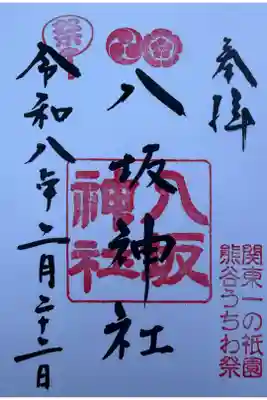 奉拝
関東一の祇園
熊谷うちわ祭
八坂神社
八坂
神社
令和八年二月二十二日